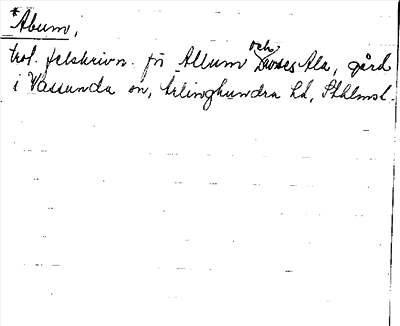 *Abum,
trol. felskrivn. för Allum och Ala, gård
i Vassunda sn, Ärlinghundra hd, Sthlms l.